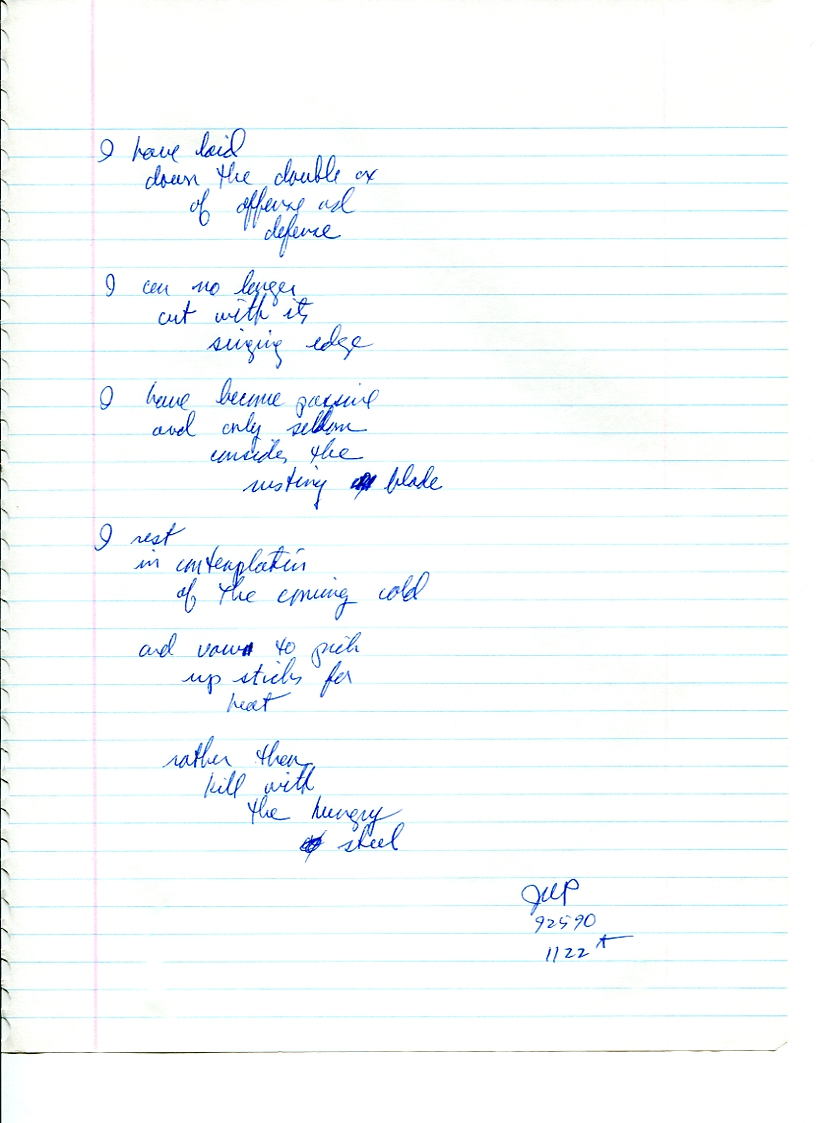 I have laid
down the double ax
of offense and
defense
I can no longer
cut with its
singing edge
I have become passive
and only seldom
consider the
rusting blade
I rest
in contemplation
of the coming cold
and vow to pick
up sticks for
heat
rather than
kill with
the hungry
steel
92590
1122